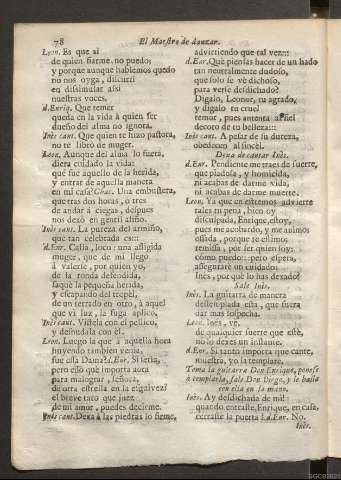 78
El Maestro de danzar.
Leon. Es que al
de quien fiarme no puedo;
y porque aunque hablemos quedo
no nos oyga, discurrì
en dissimular assi
nuestras voces.
d.Enriq. Que temer
queda en la vida à quien ser
dueño del alma no ignora.
Inès cant. Que quien te hizo pastora,
no te librò de muger.
Leon. Aunque del alma lo fuera,
diera cuidado la vida:
què fue aquello de la herida,
y entrar de aquella manera
en mi casa?
que tras dos horas, ò tres
de andar à ciegas, despues
nos dexò en gentil
Inès cant. La pureza del armiño,
que tan celebrada es::
d.Enr. Calla, loco: una afligida
muger, que de mi llegò
à valerse, por quien yo,
de la ronda defendida,
saquè la pequeña herida,
y escapando del tropèl,
de un terrado en otro, à aquel
que vi luz, la fuga aplico,
Inès cant. Vistela con el pellico,
y desnudala con èl.
Leon. Luego la que à aquella hora
huyendo tambien venia,
fue essa Dama? d.Enr. Si seria,
pero esso què importa aora
para malograr, señora,
de otra estrella en la esquivez
el breve rato que
de mi amor, puedes decirme.
Inès cant. Dexa à las piedras lo firme,
advirtiendo que tal vez:::
d.Enr. Què piensas hacer de un hado
tan neutralmente dudoso,
que solo se vè dichoso,
para verse desdichado?
Digalo, Leonor, tu agrado,
y digalo tu cruel
temor, pues atenta al fiel
decoro de tu belleza:::
Inès cant. A pesar de su dureza,
obedecen al sincèl.
Dexa de cantar Inès.
d.Enr. Pendiente me traes de suerte,
que piadosa, y homicida,
ni acabas de darme vida,
ni acabas de darme muerte.
Leon. Ya que en estremos advierte
tales tu pena, bien oy
disculpada, Enrique, estoy,
pues me acobardo, y me animos
ossada, porque te estimo;
remissa, por ser quien soy:
còmo puedo:: pero espera,
assegurare un cuidado:
Inès, por què lo has dexado?
Sale Inès.
Inès. La guitarra de manera
destemplada està, que fuera
dar mas sospecha.
Leon. Inès, ve,
de qualquier suerte que estè,
no lo dexes un instante.
d.Enr. Si tanto importa que cante,
muestra, yo la templarè.
Toma la guitarra Don Enrique, ponese
à templarla, sale Don Diego, y le halla
con ella en la mano.
Inès. Ay desdichada de mi!
quando entraste, Enrique, en casa,
cerraste la puerta? d.Enr. No.
Inès.